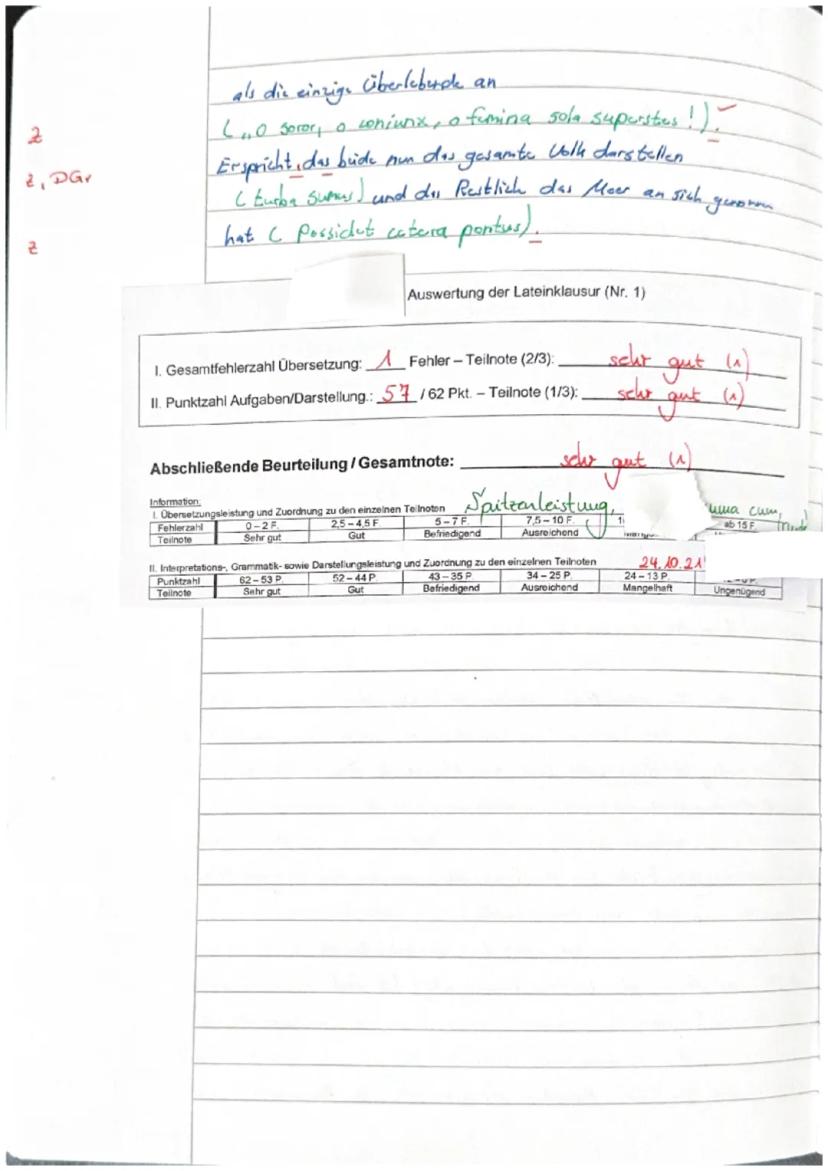 als die einzige Überlebende an
(„O soror, o coniunx, o femina sola superstes!“).
z
Er spricht, das beide nun das gesamte Volk darstellen
z, DGr
(turba sumus) und das Restlich das Meer an sich genommen
z
hat (Possidet cetera pontus).
Auswertung der Lateinklausur (Nr. 1)
I. Gesamtfehlerzahl Übersetzung: 1 Fehler – Teilnote (2/3): sehr gut (1)
II. Punktzahl Aufgaben/Darstellung.: 57 / 62 Pkt. – Teilnote (1/3): sehr gut (1)
Abschließende Beurteilung / Gesamtnote: sehr gut (1)
Spitzenleistung, cum
Information:
I. Übersetzungsleistung und Zuordnung zu den einzelnen Teilnoten
Fehlerzahl 0 – 2 F. 2,5 – 4,5 F. 5 – 7 F. 7,5 – 10 F. ab 15 F.
Teilnote Sehr gut Gut Befriedigend Ausreichend
24.10.21
II. Interpretations-, Grammatik- sowie Darstellungsleistung und Zuordnung zu den einzelnen Teilnoten
Punktzahl 62 – 53 P. 52 – 44 P. 43 – 35 P. 34 – 25 P. 24 – 13 P.
Teilnote Sehr gut Gut Befriedigend Ausreichend Mangelhaft Ungenügend